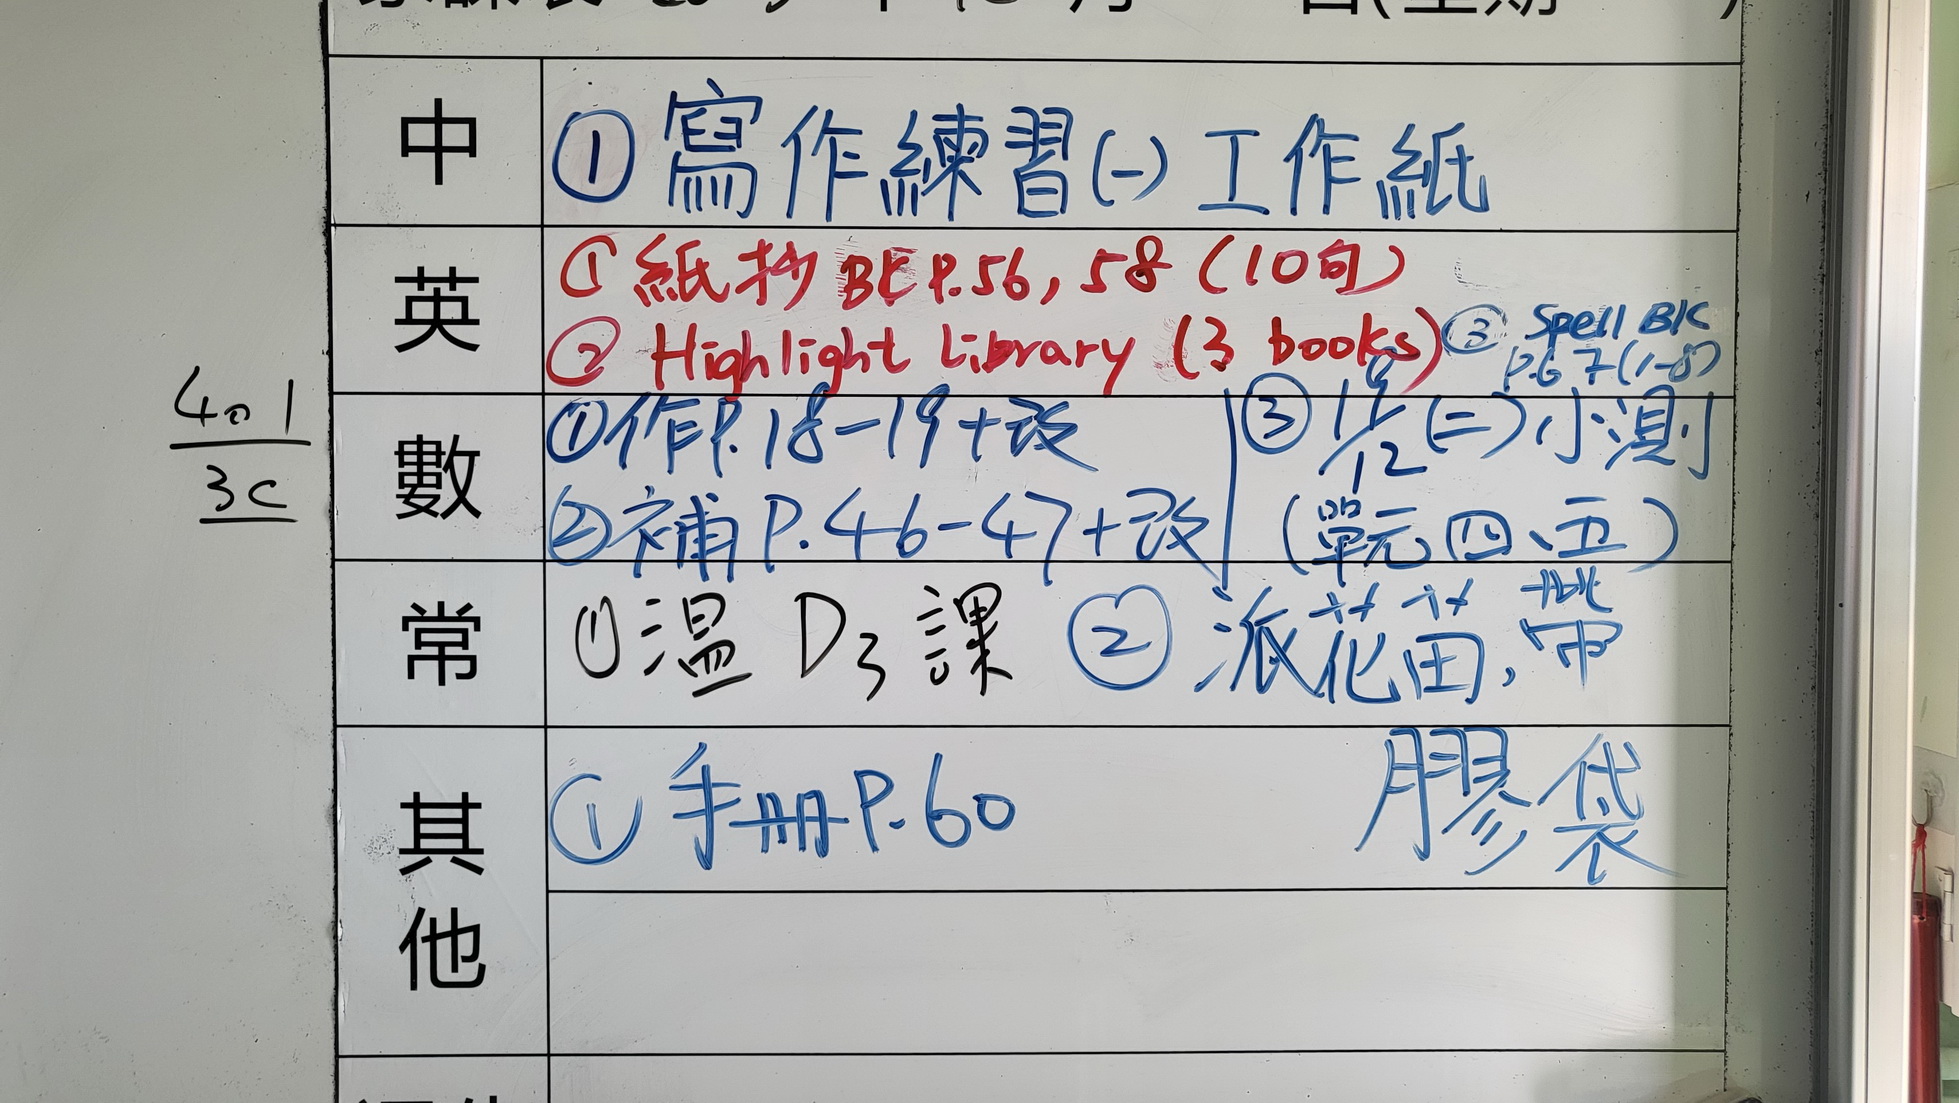 中
① 寫作練習(一)工作紙
英
① 紙抄 BK P.56, 58 (10句)
② Highlight Library (3 books)
③ Spell BK
P.67 (1-8)
4.1
3C
數
① 作P.18-19+改
② 補P.46-47+改
③ 19/12(二)小測
(單元四、五)
常
① 溫 D3 課 ② 派花苗,帶
膠袋
其他
① 手冊P.60